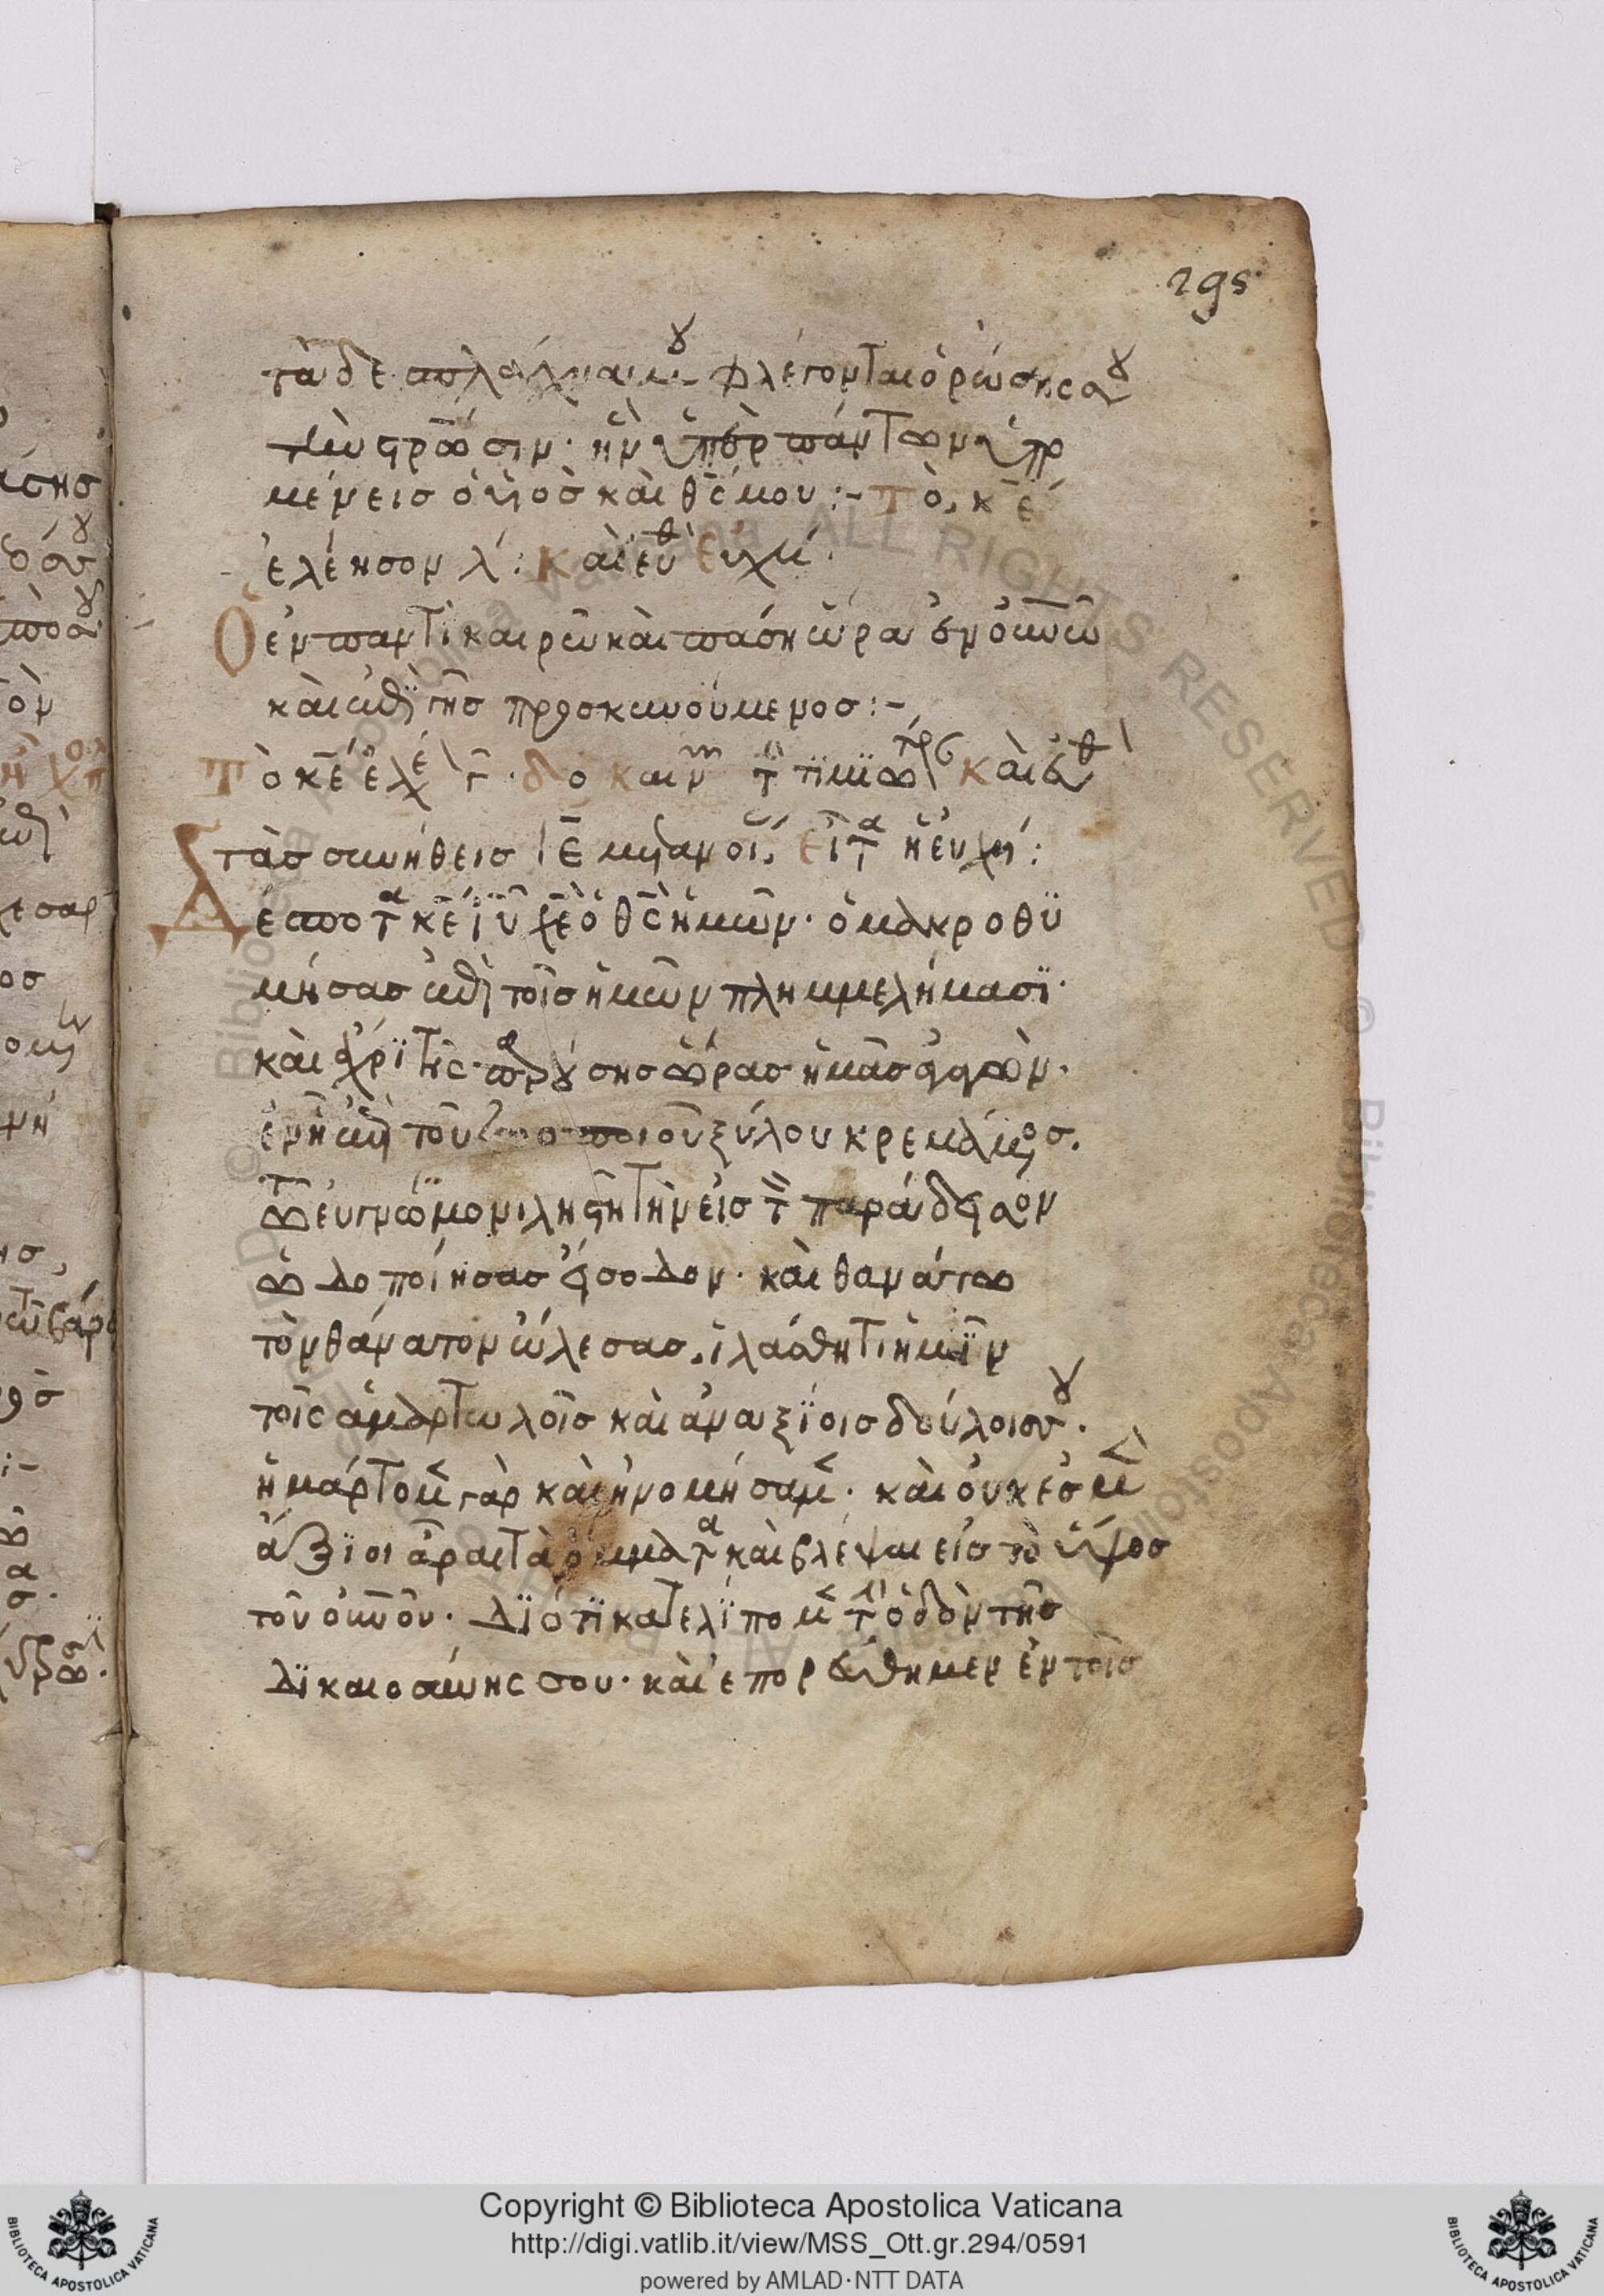 295
τὰ δὲ σπλάγχνα μου φλέγονται ὁρώσης σου
τὴν σταύρωσιν· ἣν ὑπὲρ πάντων ὑπο
μένεις ὁ υἱὸς καὶ θς μου:- Τὸ, κε
ἐλέησον λ: Καὶ εὐθ Εὐχή:
Ὁ ἐν παντὶ καιρῶ καὶ πάση ὥρα ἐν οὐνῶ
καὶ ἐπὶ γῆς προσκυνούμενος:-
Τὸ κε ἐλέ γ· δο καὶ νυν τ τιμιω Καὶ εὐθ
τὰς συνήθεις ιε μετανοί, εἶτα ἡ εὐχή:
Δέσποτα κε ιυ χε ὁ θς ἡμῶν· ὁ μακροθυ
μήσας ἐπὶ τοῖς ἡμῶν πλημμελήμασι·
καὶ ἄχρι τῆς παρούσης ὥρας ἡμᾶς ἀγαγών·
ἐν ἧ ἐπὶ τοῦ ζωοποιοῦ ξύλου κρεμάμενος.
τῶ εὐγνώμονι ληστῆ τὴν εἰς τὸν παράδεισον
ὡδοποίησας εἴσοδον· καὶ θανάτω
τὸν θάνατον ὤλεσας. ἱλάσθητι ἡμῖν
τοῖς ἁμαρτωλοῖς καὶ ἀναξίοις δούλοις σου·
ἡμάρτομεν γὰρ καὶ ἠνομήσαμεν· καὶ οὐκ ἐσμὲν
ἄξιοι ἆραι τὰ ὄμματα καὶ βλέψαι εἰς τὸ ὕψος
τοῦ οὐνοῦ· Διότι κατελίπομεν τὴν ὁδὸν τῆς
δικαιοσύνης σου· καὶ ἐπορεύθημεν ἐν τοῖς
Copyright © Biblioteca Apostolica Vaticana
http://digi.vatlib.it/view/MSS_Ott.gr.294/0591
powered by AMLAD·NTT DATA
BIBLIOTECA APOSTOLICA VATICANA
BIBLIOTECA APOSTOLICA VATICANA